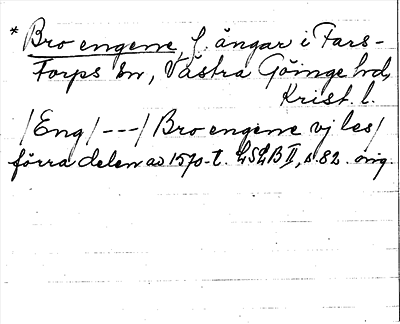 * Bro engene, f. ängar i Fars-
Torps sn, Västra Göinge hd,
Krist. l.
/Eng/ ---/ Bro engene vj les/
förra delen av 1570-t. LSLB II, s. 82. orig.